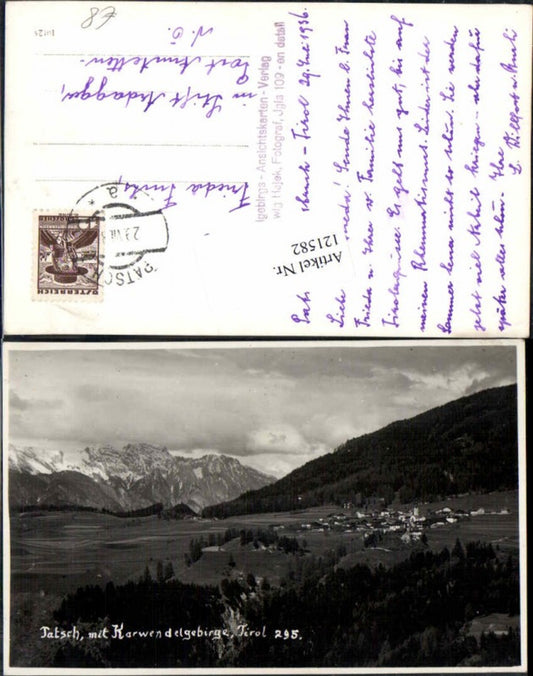 €8
10125
N. Ö.
Post Amstetten.
in Stift Ardagger,
Frieda Fuchs,
lgebirgs-Ansichtskarten-Verlag
wig Hojek, Fotograf, Jgls 109 - en detail
Artikel Nr.
121582
PATSCH
a
ÖSTERREICH
Patsch - Tirol 29. Juli 1936.
Liebe Sende Ihnen b. Frau
Frieda u. Ihrer w. Familie herzlichste
Tirolergrüsse. Es geht uns gut, bis auf
meinen Rheumatismus. Leider ist der
Sommer heuer nicht so schön. Sie werden
jetzt viel Arbeit kriegen - aber dafür
später alles schön. Ihre
Patsch, mit Karwendelgebirge, Tirol 295.